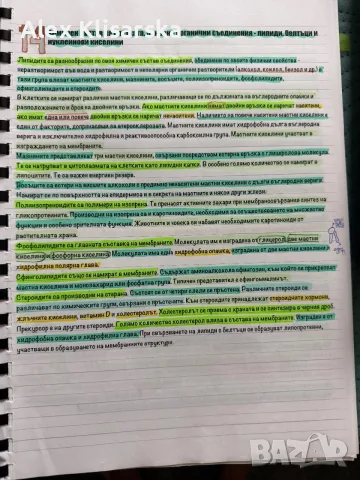 Alex Klisarska
14
органични съединения - липиди, белтъци и
нуклеинови киселини
Липидите са разнообразни по своя химичен състав съединения, обединени по своите физични свойства -
неразтворимост във вода и разтворимост в неполярни органични разтворители (алкохол, ксилол, бензол и др.)
В тази група влизат мастните киселини, триглицеридите, восъците, полиизопреноидите, фосфолипидите,
сфинголипидите и стероидите.
В клетките се намират различни мастни киселини, които се различават по дължината на въглеродната верига и
разположението и броя на двойните връзки. Ако мастните киселини нямат двойни връзки се наричат наситени,
ако имат една или повече двойни връзки се наричат ненаситени. Наличието на повече наситени мастни киселини е
един от факторите, допринасящи за атеросклерозата. Мастните киселини имат хидрофобна дълга въглеродна
верига и изключително хидрофилна и реактивоспособна карбоксилна група. Мастните киселини участват в
изграждането на
Мазнините представляват три мастни киселини, свързани посредством естерна връзка с глицеролова молекула.
Те се натрупват в цитоплазмата на клетките като липидни капки. В особено голямо количество се намират в
липоцитите. Те са важен енергиен резерв.
Восъците са естери на висшите алкохоли и предимно ненаситени мастни киселини с дълги въглеродни вериги.
Намират се по повърхността на епидермиса и в секретите на мастните и някои други жлези.
Полиизопреноидите са полимери на изопрена. Те пренасят активните захари при мембранносвързания синтез на
гликопротеините. Производни на изопрена са и каротиноидите, необходими за осъществяването на множество
функции и особено зрителната функция. Животните и човека ги набавят необходимите каротеноиди от
растителната храна.
Фосфолипидите са главната съставка на мембраните. Молекулата им е изградена от глицерол, две мастни
киселини и фосфорна киселина. Молекулата има една хидрофобна опашка, изградена от две мастни киселини и
хидрофилна полярна глава.
Сфинголипидите също се намират в мембраните. Съдържат аминоалкохола сфингозин, към който се прикрепват
мастни киселини и монозахарид или фосфатна група. Типичен представител е сфингомиелинът.
Стероидите са производни на стерана. Състоят се от четири слети се пръстена. Разнообразните стероиди се
различават по химическите групи, свързани с пръстените. Към стероидите принадлежат стероидните хормони,
жлъчните киселини, витамин D и холестеролът. Холестеролът се приема с храната и се синтезира в черния дроб.
Прекурсор е на другите стероиди. Голямо количество холестерол влиза в състава на мембраните. Изграден е от
хидрофобна опашка и хидрофилна глава. При свързването на липиди с белтъци се образуват липопротеини,
участващи в образуването на мембранните структури.
BAZAR
bg